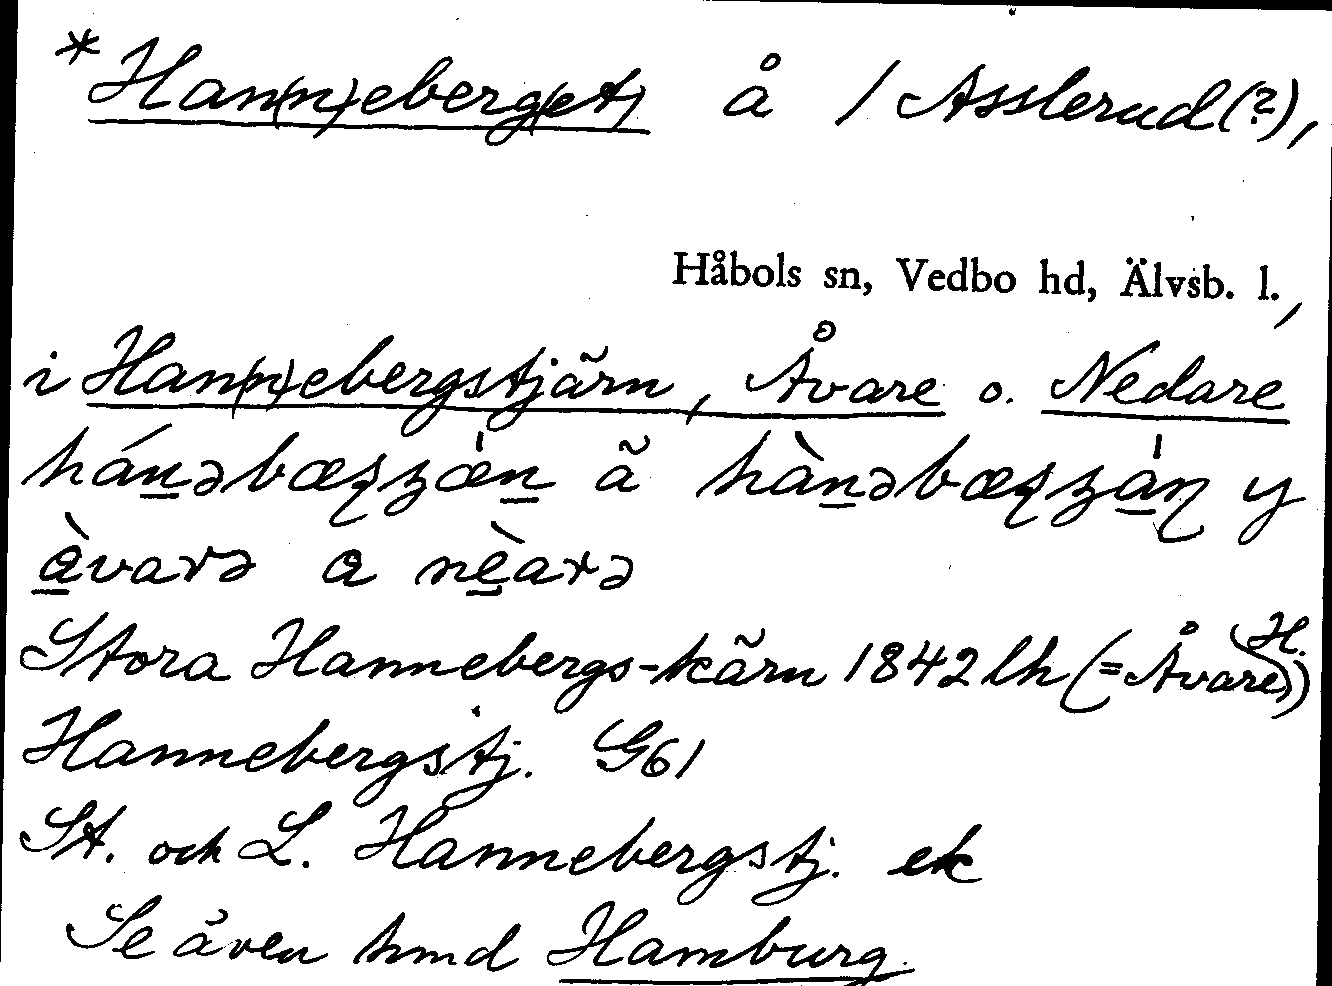 *Han(n)eberg(et) å / Asslerud(?),
Håbols sn, Vedbo hd, Älvsb. l.,
i Han(n)ebergstjärn, Åvare o. Nedare
hánəbæʂʒæ̀n ã hànəbæʂʒàn̡ y
àvarə a nèarə
Stora Hannebergs-kärn 1842 lh (=Åvare H.)
Hannebergstj. G61
St. och L. Hannebergstj. ek
Se även hmd Hamburg.